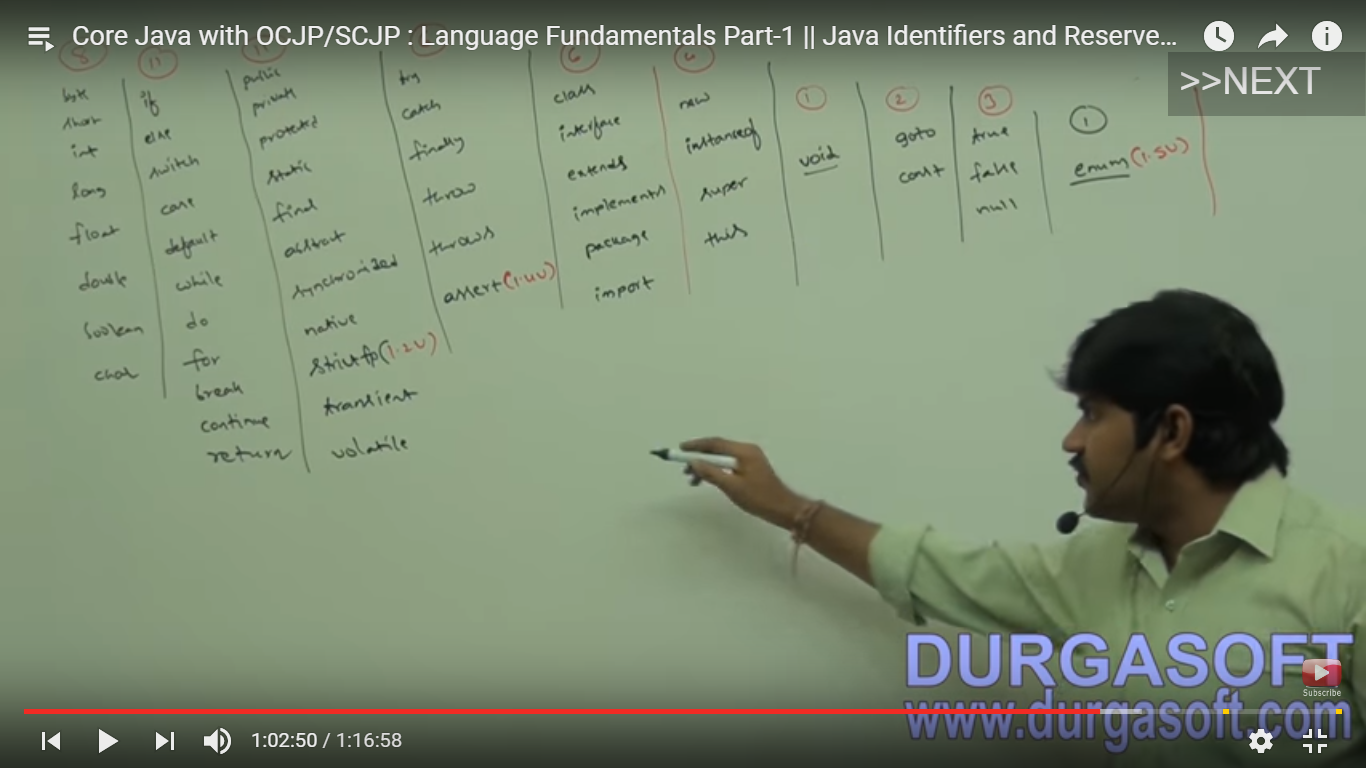 Core Java with OCJP/SCJP : Language Fundamentals Part-1 || Java Identifiers and Reserve...
>>NEXT
8
byte
short
int
long
float
double
boolean
char
11
if
else
switch
case
default
while
do
for
break
continue
return
11
public
private
protected
static
final
abstract
synchronized
native
strictfp(1.2V)
transient
volatile
try
catch
finally
throw
throws
assert(1.4V)
6
class
interface
extends
implements
package
import
4
new
instanceof
super
this
1
void
2
goto
const
3
true
false
null
1
enum(1.5V)
DURGASOFT
www.durgasoft.com
Subscribe
1:02:50 / 1:16:58